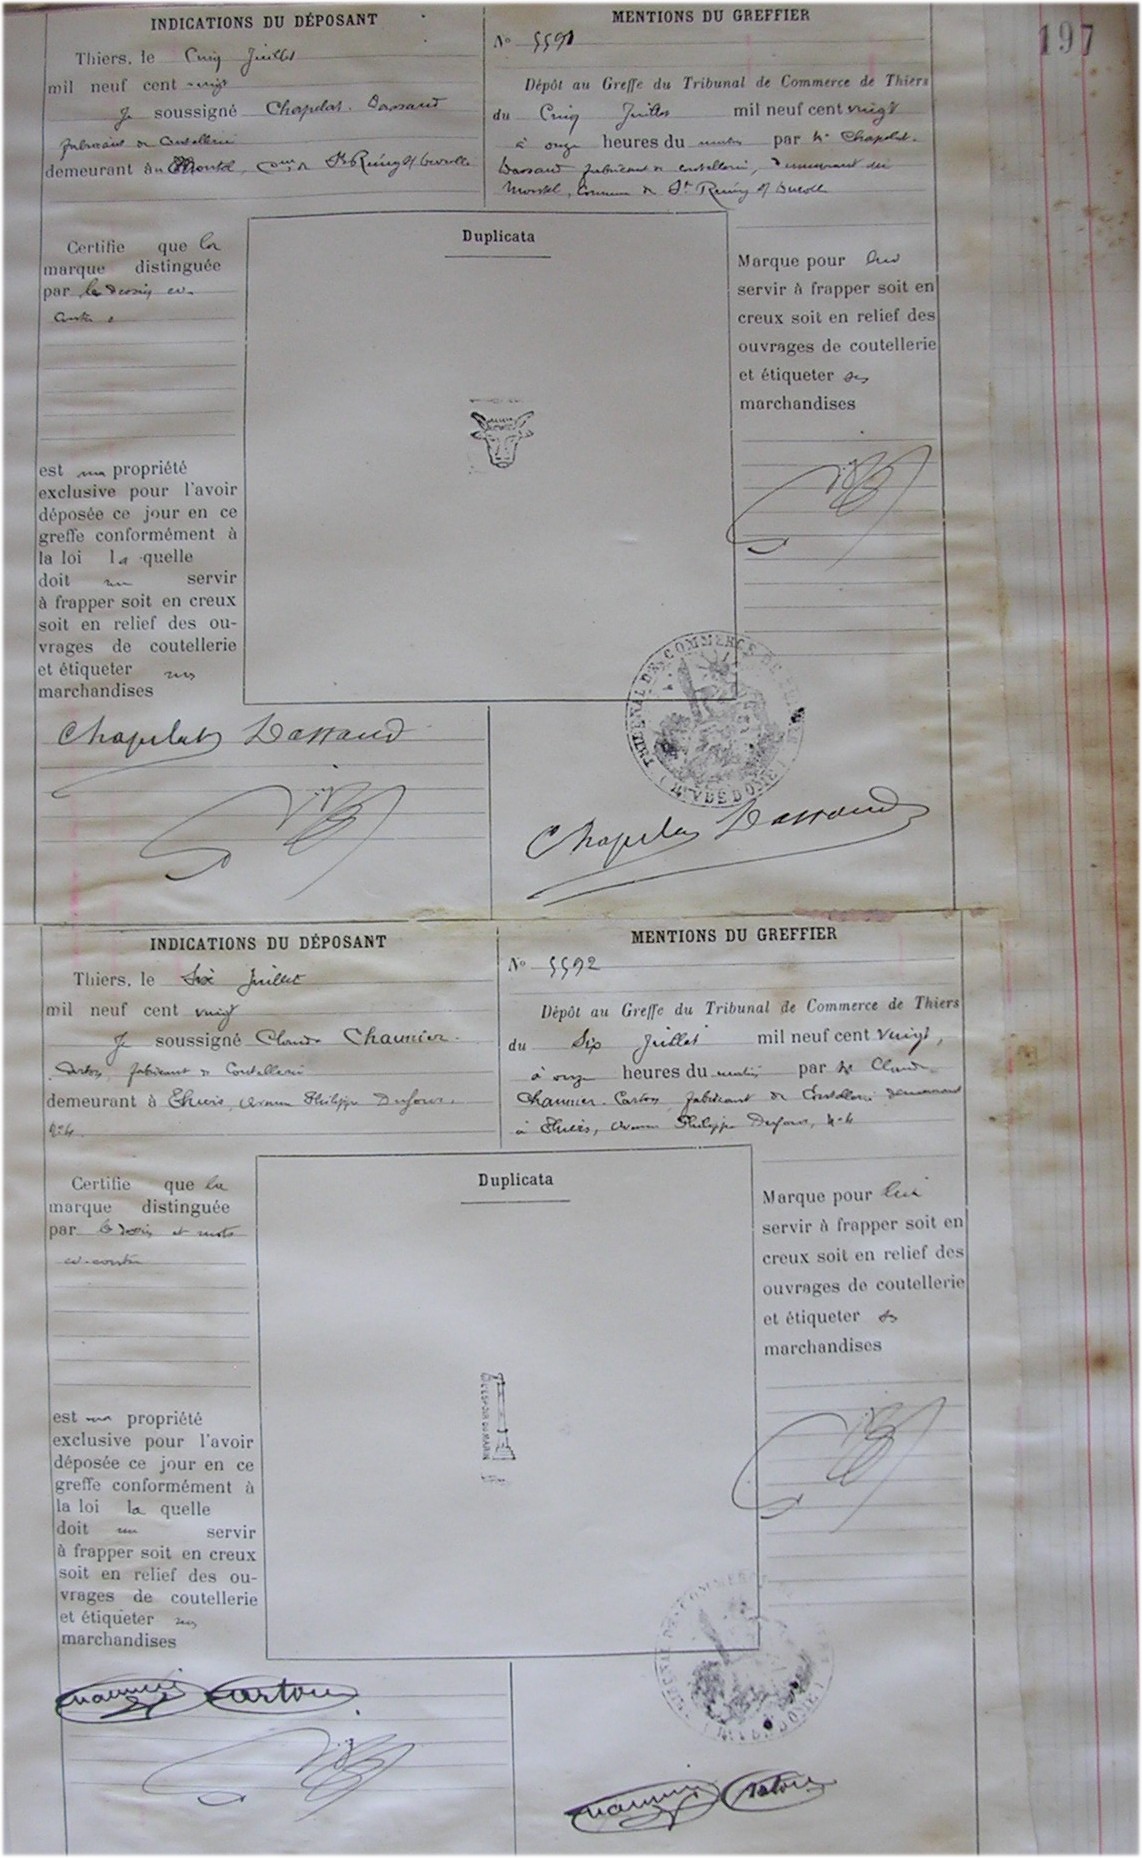 197
INDICATIONS DU DÉPOSANT
Thiers, le Cinq Juillet
mil neuf cent vingt
Je soussigné Chapelat-Dassaud
fabricant de Coutellerie
demeurant au Montel, com. de St Rémy s/ Durolle
MENTIONS DU GREFFIER
No 5591
Dépôt au Greffe du Tribunal de Commerce de Thiers
du Cinq Juillet mil neuf cent vingt
à onze heures du matin par Mr Chapelat-
Dassaud fabricant de coutellerie, demeurant au
Montel, Commune de St Rémy s/ Durolle
Certifie que la
marque distinguée
par le dessin ci-
contre
est ma propriété
exclusive pour l'avoir
déposée ce jour en ce
greffe conformément à
la loi la quelle
doit me servir
à frapper soit en creux
soit en relief des ou-
vrages de coutellerie
et étiqueter mes
marchandises
Duplicata
Marque pour lui
servir à frapper soit en
creux soit en relief des
ouvrages de coutellerie
et étiqueter ses
marchandises
TRIBUNAL DE COMMERCE DE THIERS
Chapelat Dassaud
Chapelat Dassaud
INDICATIONS DU DÉPOSANT
Thiers, le Six Juillet
mil neuf cent vingt
Je soussigné Claude Chaunier-
Carton, fabricant de Coutellerie
demeurant à Thiers, Avenue Philippe Dufour,
No 4.
MENTIONS DU GREFFIER
No 5592
Dépôt au Greffe du Tribunal de Commerce de Thiers
du Six Juillet mil neuf cent vingt,
à onze heures du matin par Mr Claude
Chaunier-Carton, fabricant de Coutellerie demeurant
à Thiers, Avenue Philippe Dufour, No 4
Certifie que la
marque distinguée
par le dessin et mots
ci-contre
est ma propriété
exclusive pour l'avoir
déposée ce jour en ce
greffe conformément à
la loi la quelle
doit me servir
à frapper soit en creux
soit en relief des ou-
vrages de coutellerie
et étiqueter mes
marchandises
Duplicata
L'ESPOIR DU MARIN
Marque pour lui
servir à frapper soit en
creux soit en relief des
ouvrages de coutellerie
et étiqueter ses
marchandises
Chaunier Carton
Chaunier Carton